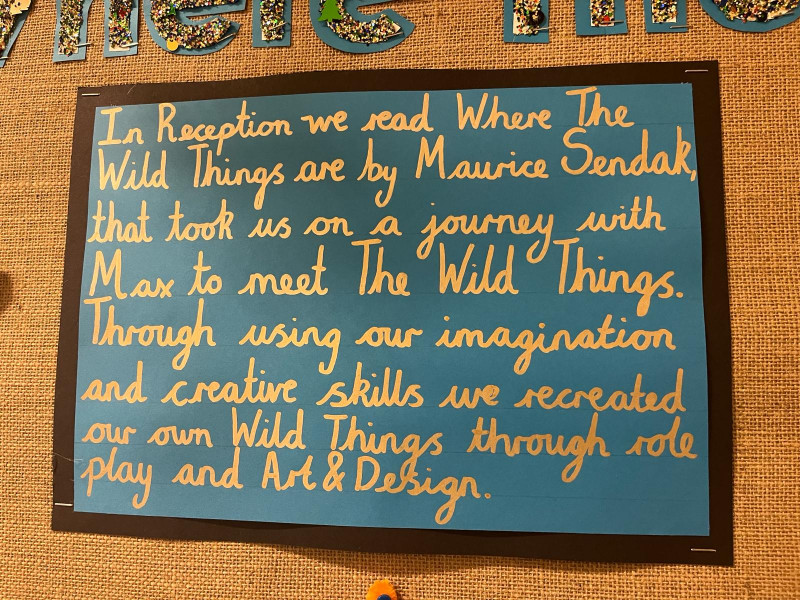 In Reception we read Where The
Wild Things are by Maurice Sendak,
that took us on a journey with
Max to meet The Wild Things.
Through using our imagination
and creative skills we recreated
our own Wild Things through role
play and Art & Design.